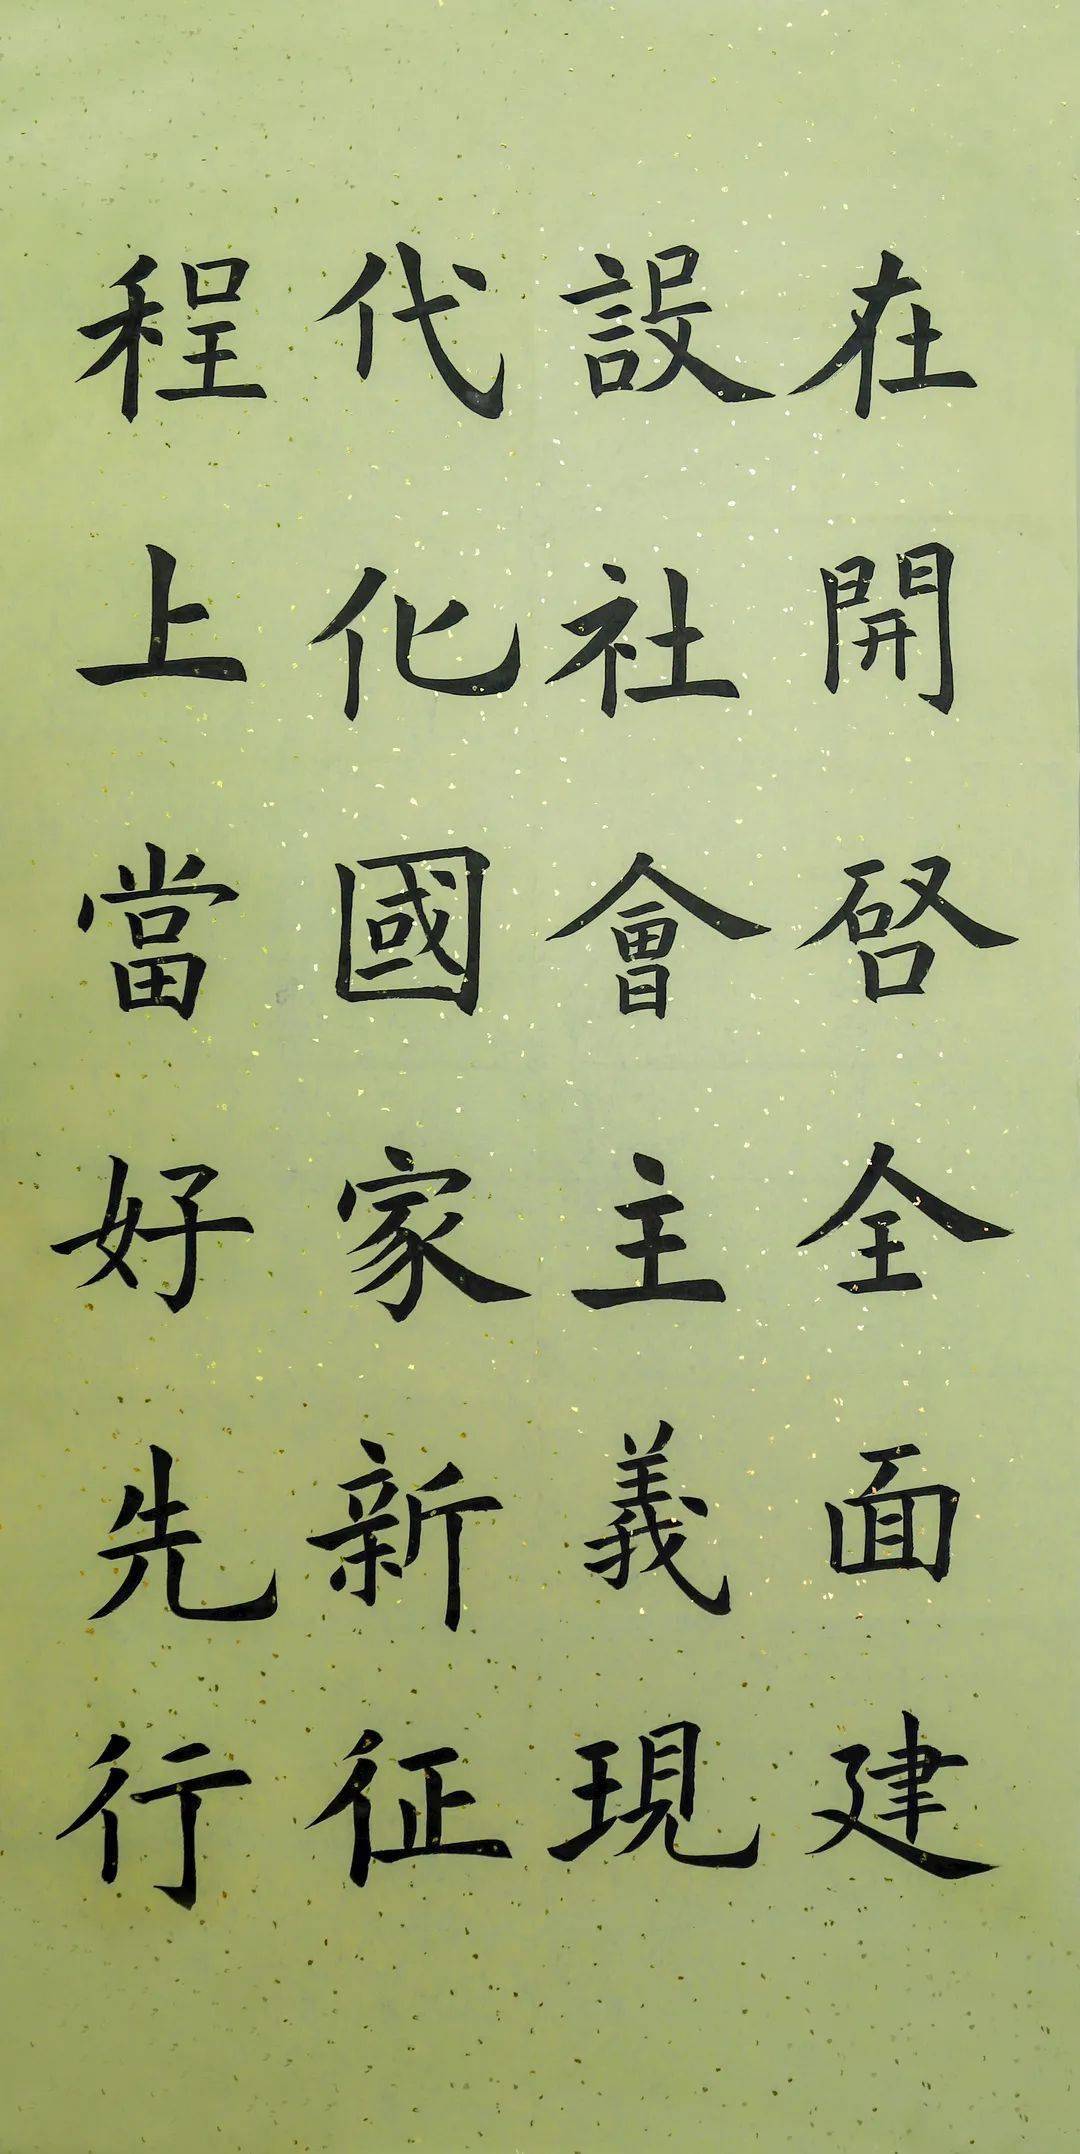 在開啓全面建
設社會主義現
代化國家新征
程上當好先行